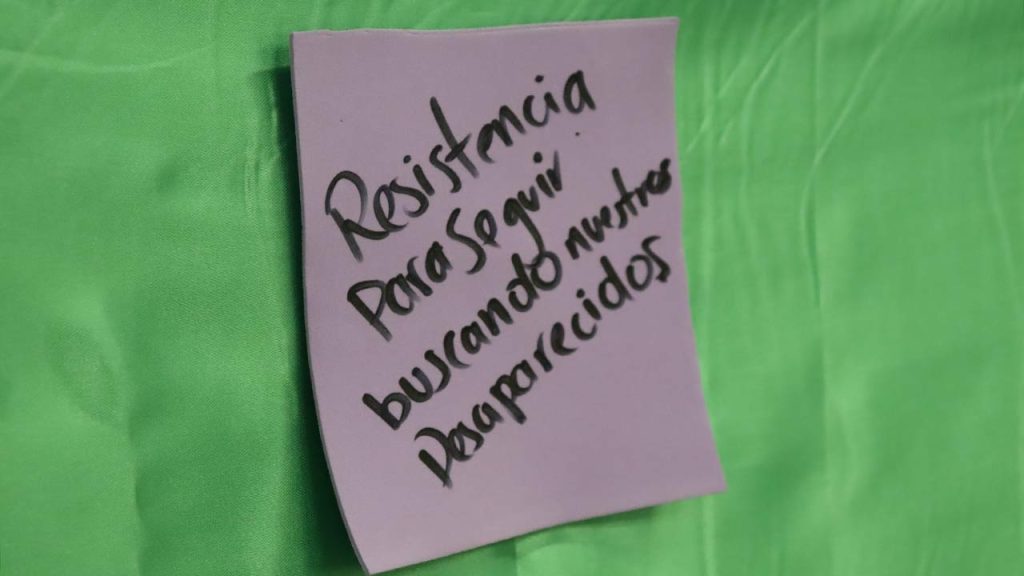 Resistencia
para Seguir
buscando nuestros
Desaparecidos